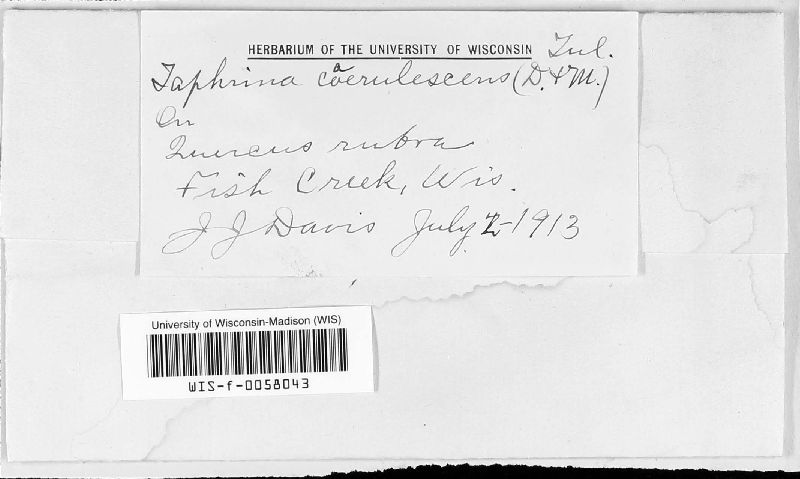 HERBARIUM OF THE UNIVERSITY OF WISCONSIN
Taphrina caerulescens (D. & M.) Tul.
On
Quercus rubra
Fish Creek, Wis.
J J Davis July 1913
University of Wisconsin-Madison (WIS)
WIS-f-0058043